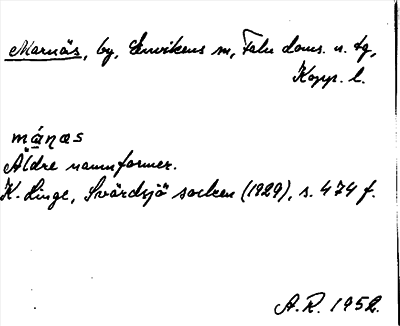 Marnäs, by, Envikens sn, Falu doms. n. tg,
Kopp. l.
máṇæs
Äldre namnformer.
K. Linge, Svärdsjö socken (1929), s. 474 f.
A.R. 1952.